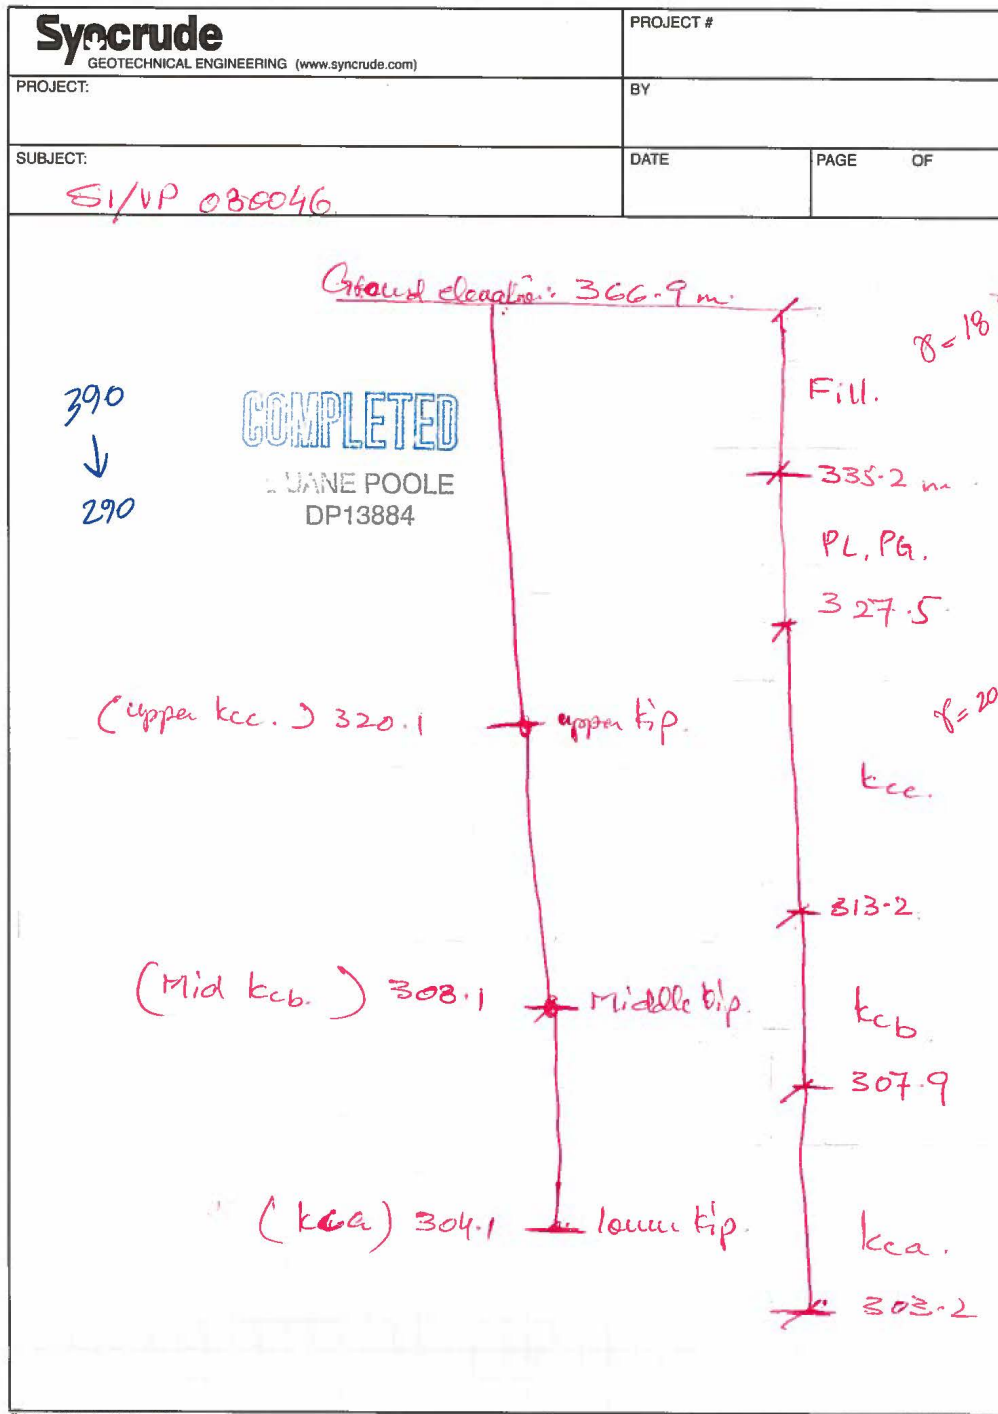 Syncrude
GEOTECHNICAL ENGINEERING (www.syncrude.com)
PROJECT #
PROJECT:
BY
SUBJECT:
SI/VP 030046
DATE
PAGE OF
Ground elevation: 366.9 m.
γ = 18
390
↓
290
COMPLETED
JANE POOLE
DP13884
Fill.
335.2 m
PL, PG.
327.5
(upper kcc.) 320.1
upper tip.
γ = 20
kcc.
313.2
(Mid kcb.) 308.1
Middle tip.
kcb
307.9
(kca) 304.1
lower tip.
kca.
303.2